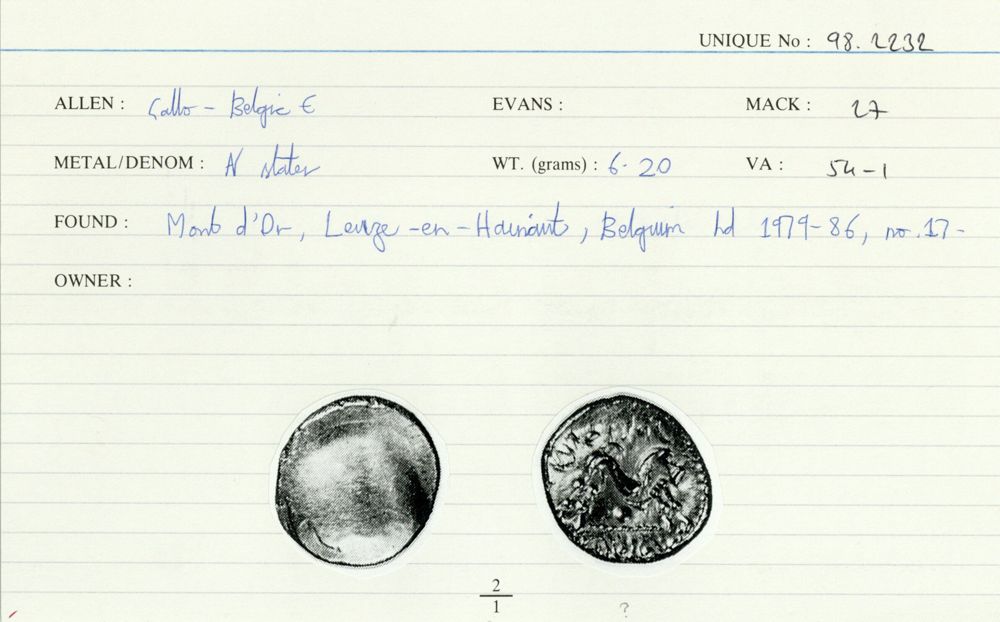 UNIQUE No : 98.2232
ALLEN : Gallo - Belgic E EVANS : MACK : 27
METAL/DENOM : N stater WT. (grams) : 6.20 VA : 54-1
FOUND : Mont d'Or, Leuze-en-Hainaut, Belguim hd 1979-86, no.17-
OWNER :
2
1
?